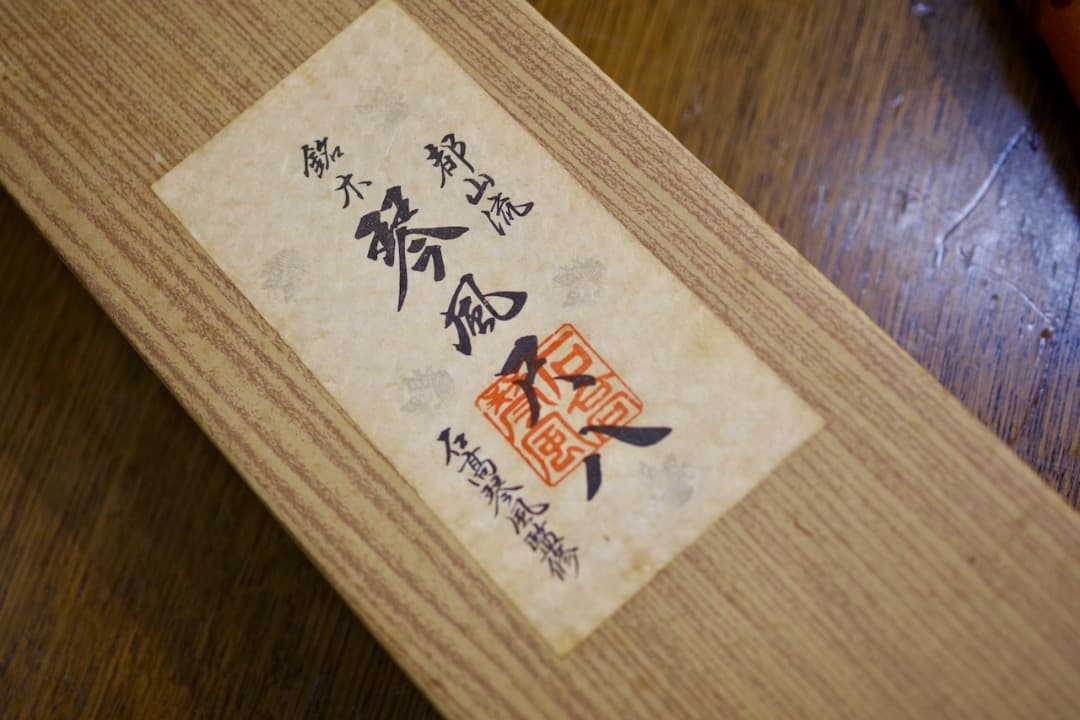 都山流
銘木
琴風尺八
石高琴風監修
石高
琴風